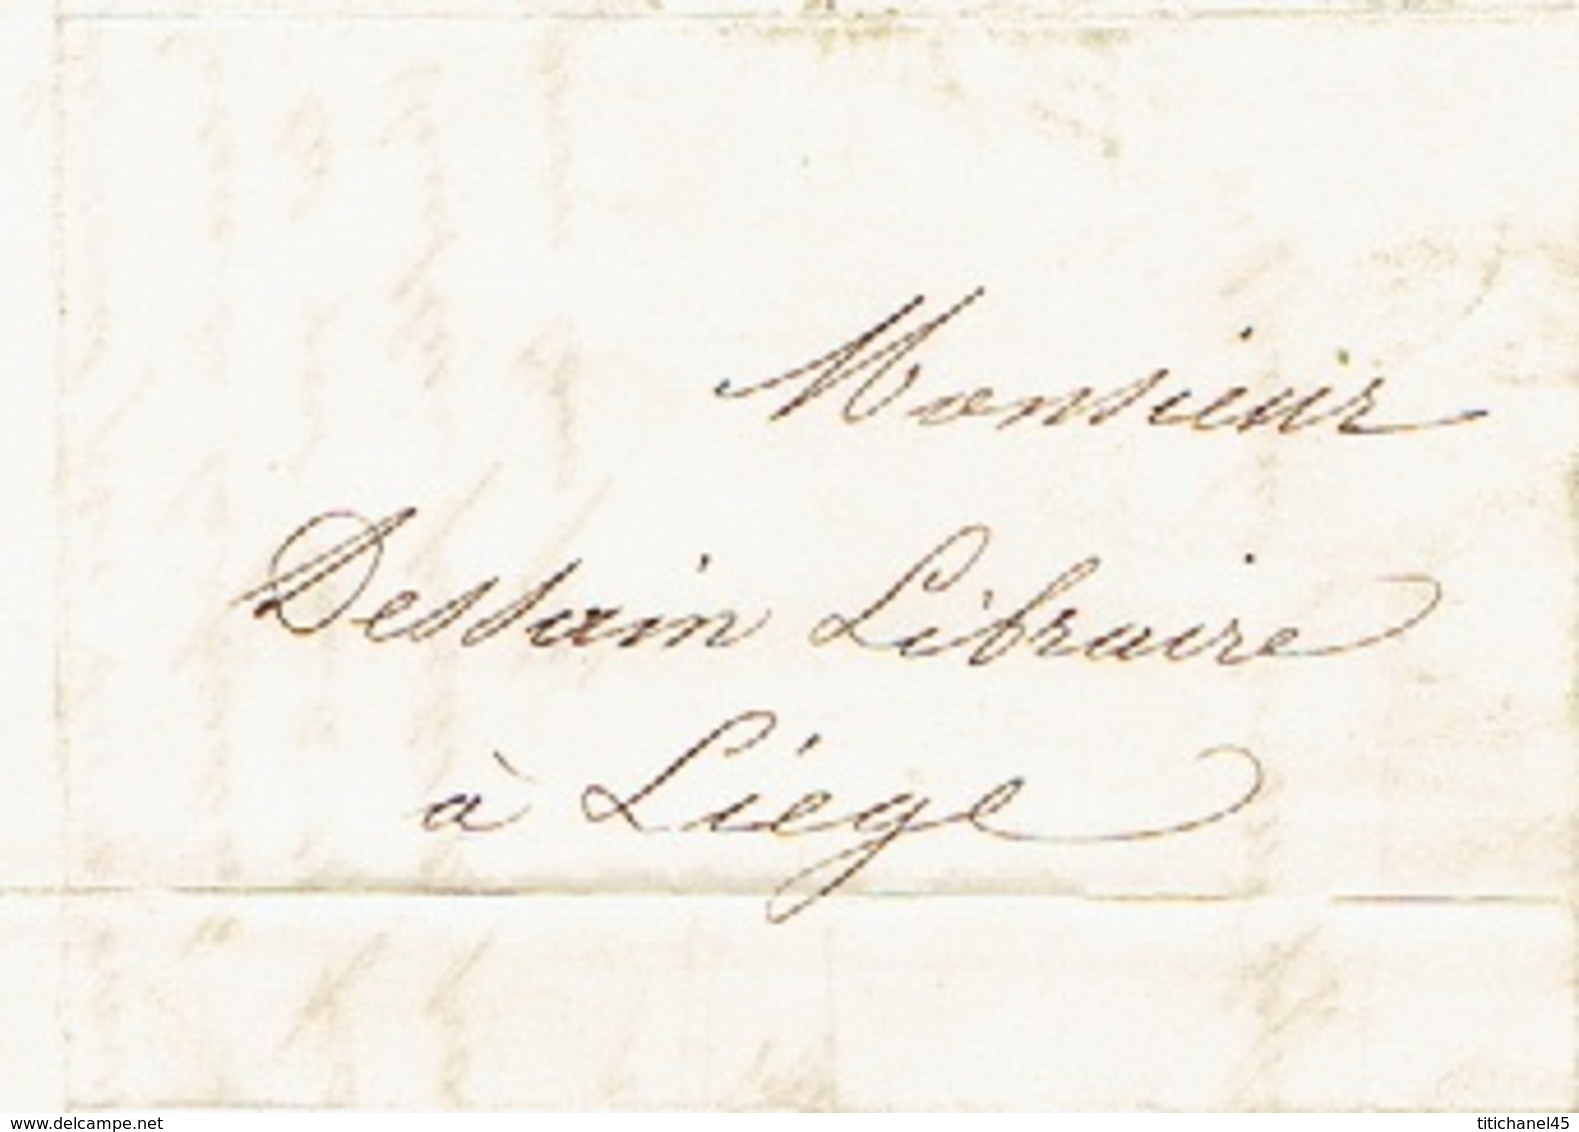 Monsieur
Dessain Libraire
à Liége
www.delcampe.net
titichanel45